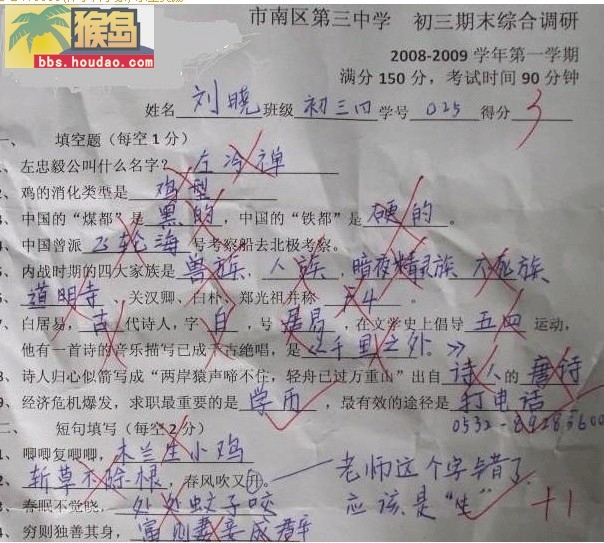 猴岛
bbs.houdao.com
市南区第三中学 初三期末综合调研
2008-2009 学年第一学期
满分 150 分，考试时间 90 分钟
姓名 刘晓 班级 初三四 学号 025 得分 3
一、 填空题（每空 1 分）
、左忠毅公叫什么名字？ 左冷禅
、鸡的消化类型是 鸡型
、中国的“煤都”是 黑的 ，中国的“铁都”是 硬的 。
、中国曾派 飞轮海 号考察船去北极考察。
、内战时期的四大家族是 兽族、人族，暗夜精灵族 不死族、
道明寺 、关汉卿、白朴、郑光祖并称 F4 。
7、白居易， 古 代诗人，字 自 ，号 居易 ，在文学史上倡导 五四 运动，
他有一首诗的音乐描写已成千古绝唱，是 《千里之外》
8、诗人归心似箭写成“两岸猿声啼不住，轻舟已过万重山”出自 诗人 的 唐诗
9、经济危机爆发，求职最重要的是 学历 ，最有效的途径是 打电话
0532-89285600
二、 短句填写（每空 2 分）
1、唧唧复唧唧， 木兰生小鸡
2、 斩草不除根 ，春风吹又开。 老师这个字错了
3、春眠不觉晓， 处处蚊子咬 应该是“生” +1
4、穷则独善其身， 富则妻妾成群